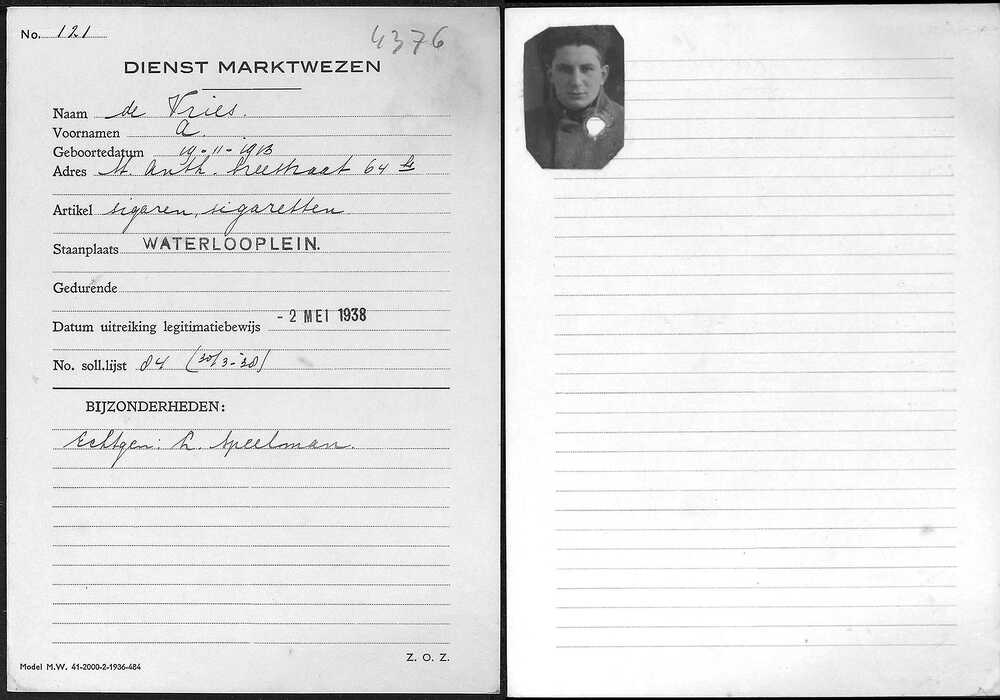 No. 121
4376
DIENST MARKTWEZEN
Naam de Vries.
Voornamen A.
Geboortedatum 19-11-1913
Adres St. Anth. breestraat 64 hs
Artikel sigaren, sigaretten
Staanplaats WATERLOOPLEIN.
Gedurende
Datum uitreiking legitimatiebewijs - 2 MEI 1938
No. soll.lijst 84 (30/3-38)
BIJZONDERHEDEN:
Echtgen: L. Speelman.
Model M.W. 41-2000-2-1936-484
Z. O. Z.